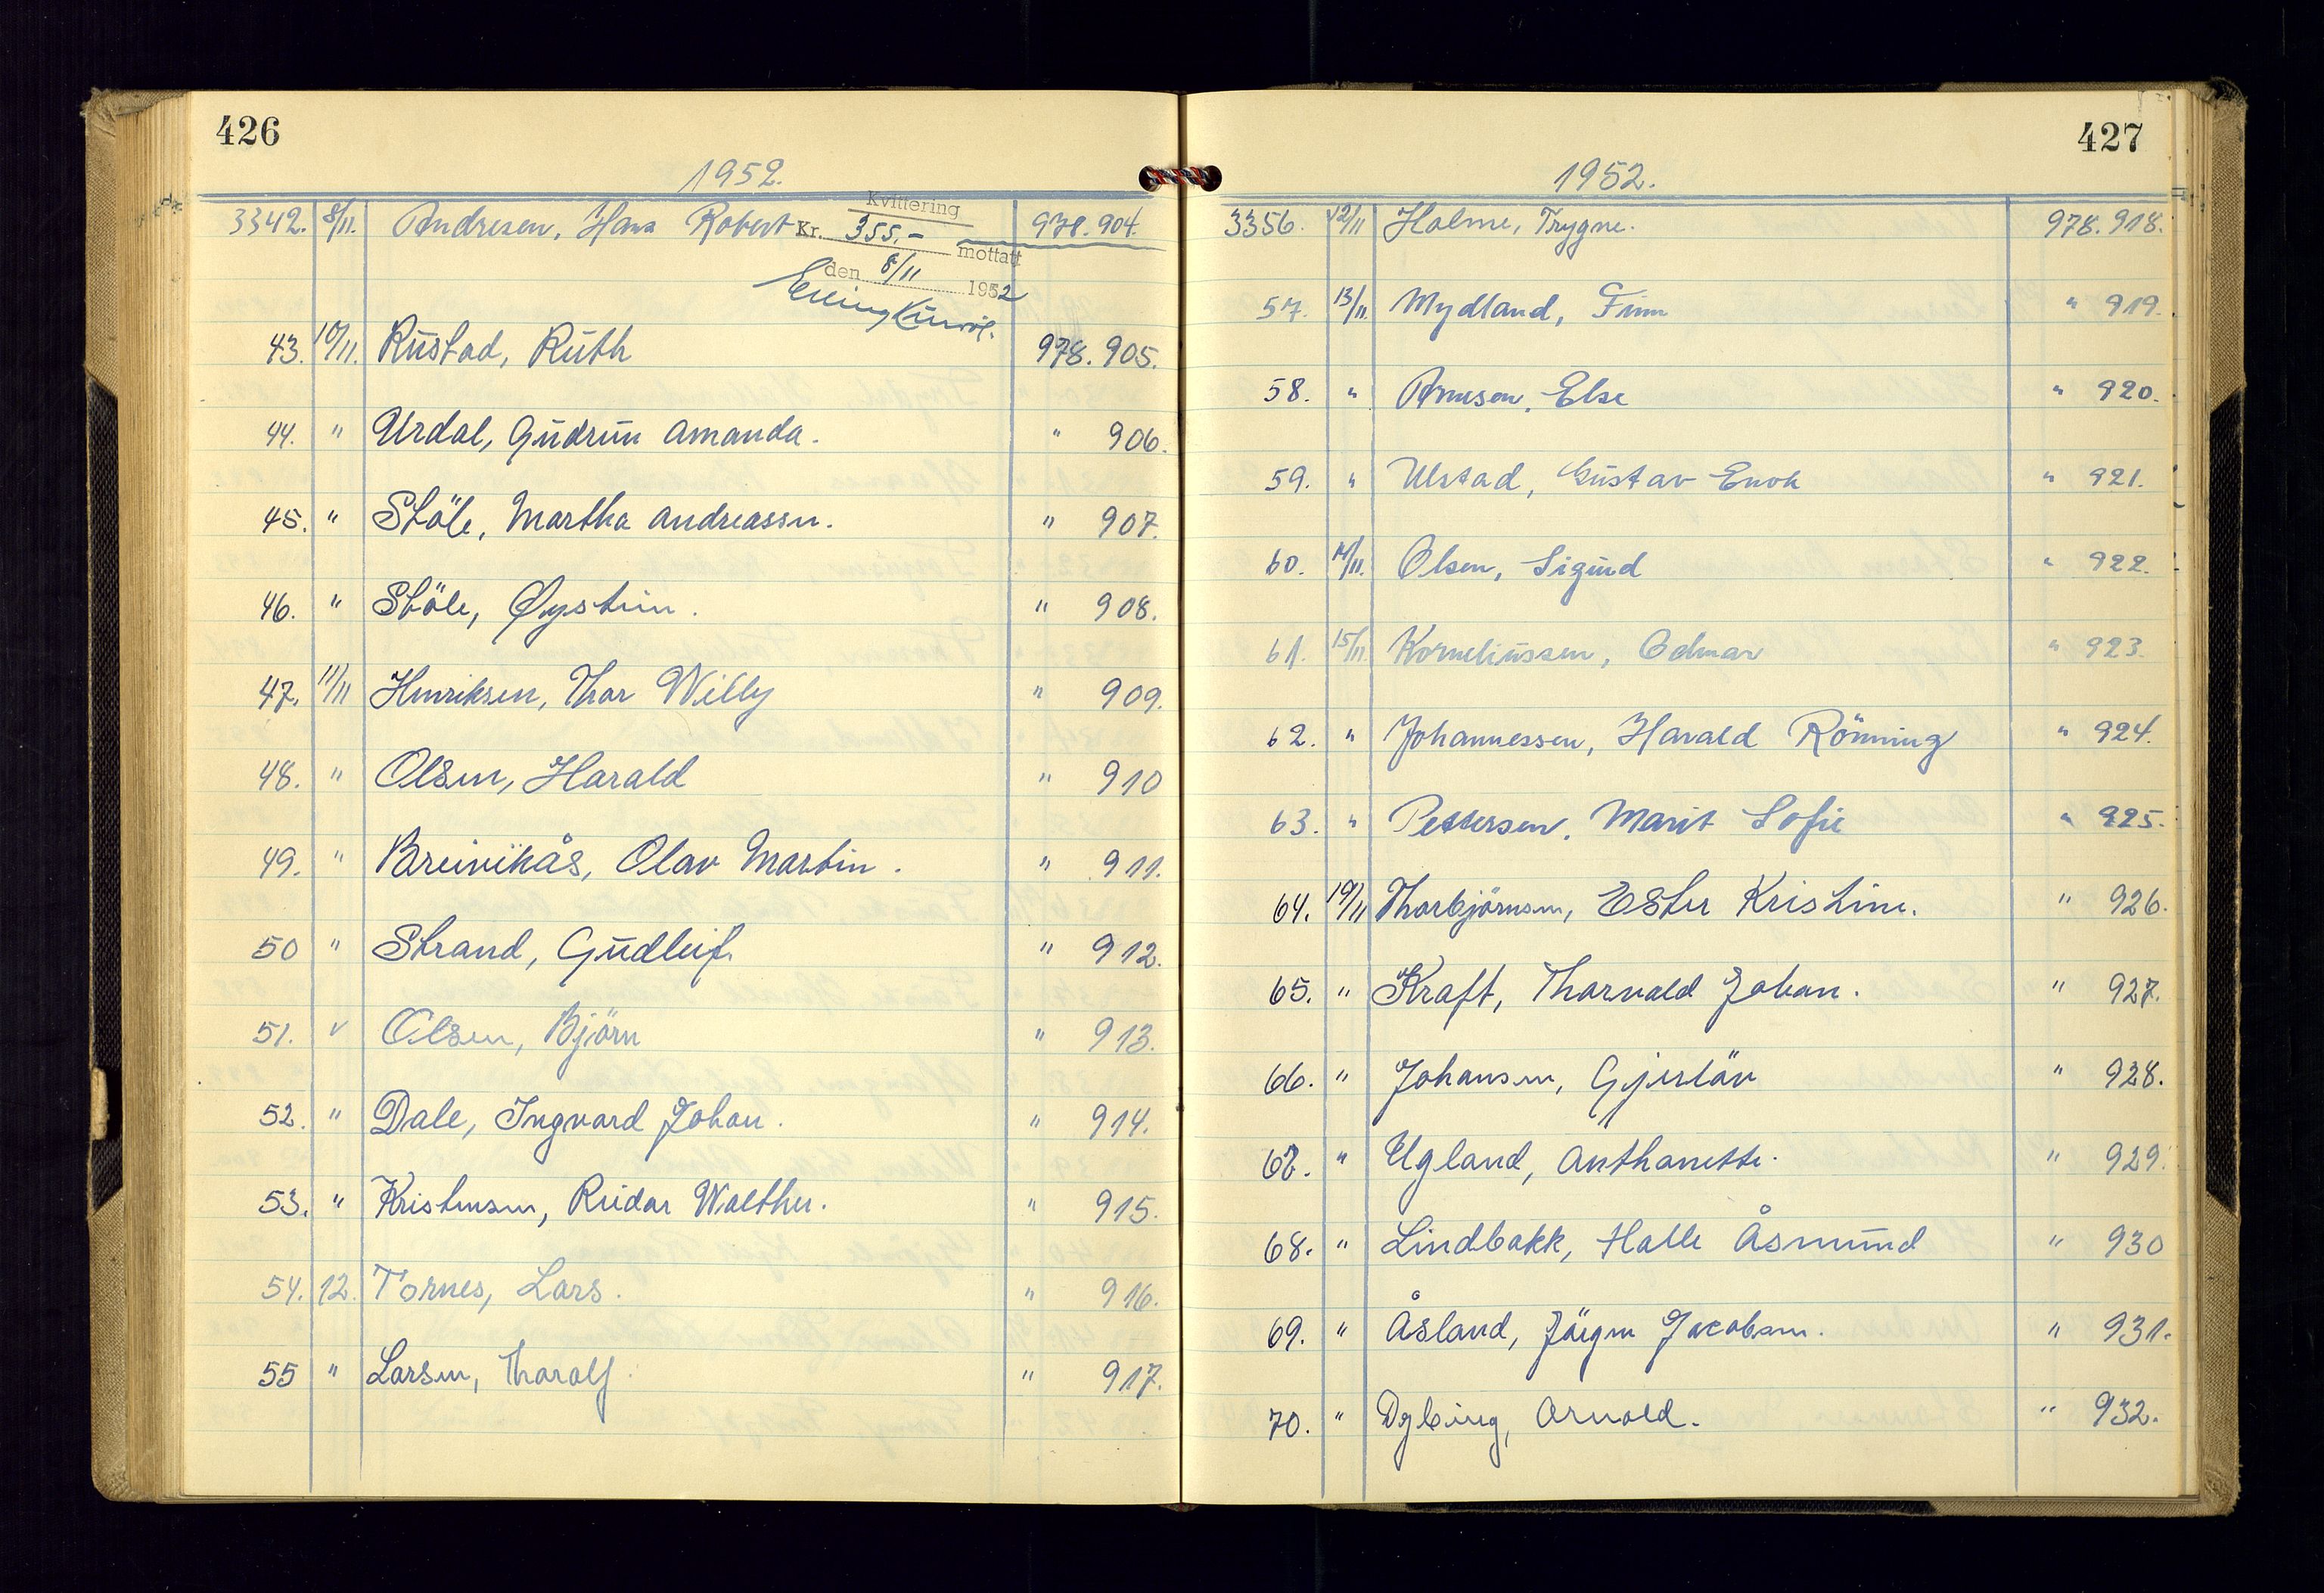 426
1952.
3342. 8/11. Andresen, Hans Robert 978.904.
Kvittering
Kr. 355,- mottatt
den 8/11 1952
43. 10/11. Rustad, Ruth 978.905.
44. " Urdal, Gudrun Amanda. " 906.
45. " Ståle, Martha Andreassen. " 907.
46. " Ståle, Øystein. " 908.
47. 11/11 Henriksen, Thor Willy " 909.
48. " Olsen, Harald " 910
49. " Breivikås, Olav Martin. " 911.
50 " Strand, Gudleif. " 912.
51. " Olsen, Björn " 913.
52. " Dale, Ingvard Johan. " 914.
53. " Kristensen, Reidar Walther. " 915.
54. 12. Tornes, Lars. " 916.
55 " Larsen, Tharalf. " 917.
427
1952.
3356. 12/11 Holme, Trygve. 978.918.
57. 13/11. Mydland, Finn " 919.
58. " Arnesen, Else " 920.
59. " Ulstad, Gustav Enok " 921.
60. 14/11. Olsen, Sigurd " 922.
61. 15/11 Korneliussen, Odmar " 923.
62. " Johannessen, Harald Rönning " 924.
63. " Pettersen, Marit Sofie " 925.
64. 19/11 Thorbjörnsen, Ester Kristine. " 926.
65. " Kraft, Thorvald Johan. " 927.
66. " Johansen, Gjerlöv " 928.
67. " Ugland, Anthanette. " 929.
68. " Lindbakk, Halle Åsmund " 930
69. " Åsland, Jörgen Jacobsen. " 931.
70. " Dybing, Arnold. " 932.